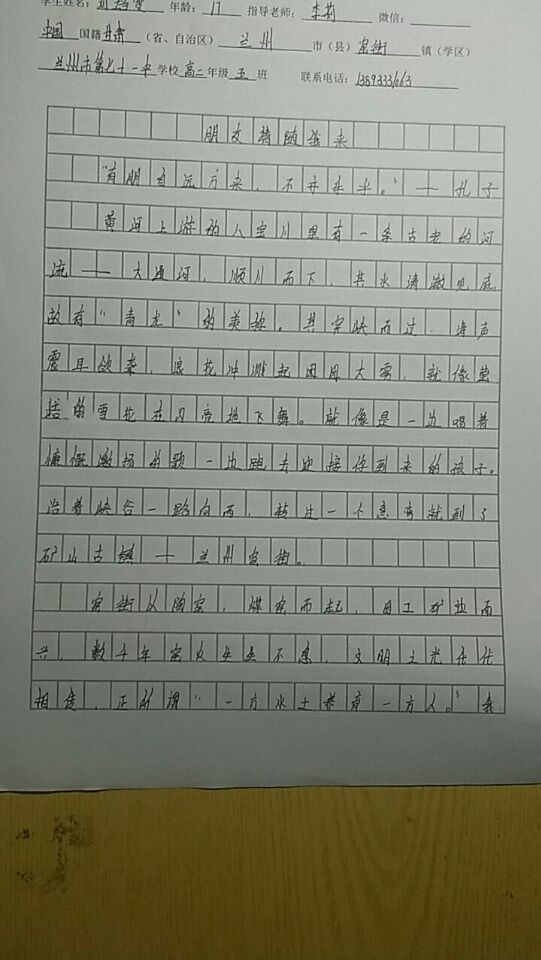 学生姓名： 年龄：17 指导老师：李莉 微信：
中国 国籍 甘肃（省、自治区） 兰州 市（县）窑街 镇（学区）
兰州市第七十一中学校 高二年级 五 班 联系电话：
朋友请随我来
“有朋自远方来，不亦乐乎。”——孔子
黄河上游的八宝川里有一条古老的河
流——大通河，顺川而下，其水清澈见底，
故有“青龙”的美称。其穿峡而过，涛声
震耳欲聋，浪花冲溅起团团大雾，就像
的雪花在月亮地飞舞。就像是一边唱着
慷慨激扬的歌一边跑去迎接你到来的孩子。
沿着峡谷一路向西，转过一个急弯就到了
矿山古镇——兰州窑街。
窑街以陶窑，煤窑而起，因工矿 而
兴，数千年窑火生生不息，文明之光代代
相传，正所谓“一方水土养育一方人。”我